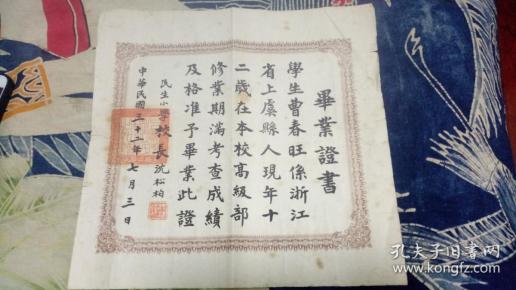 畢業證書
學生曹春旺係浙江
省上虞縣人現年十
二歲在本校高級部
修業期滿考查成績
及格准予畢業此證
民生小學校長沈松柏
中華民國三十二年七月三日
孔夫子旧书网
www.kongfz.com